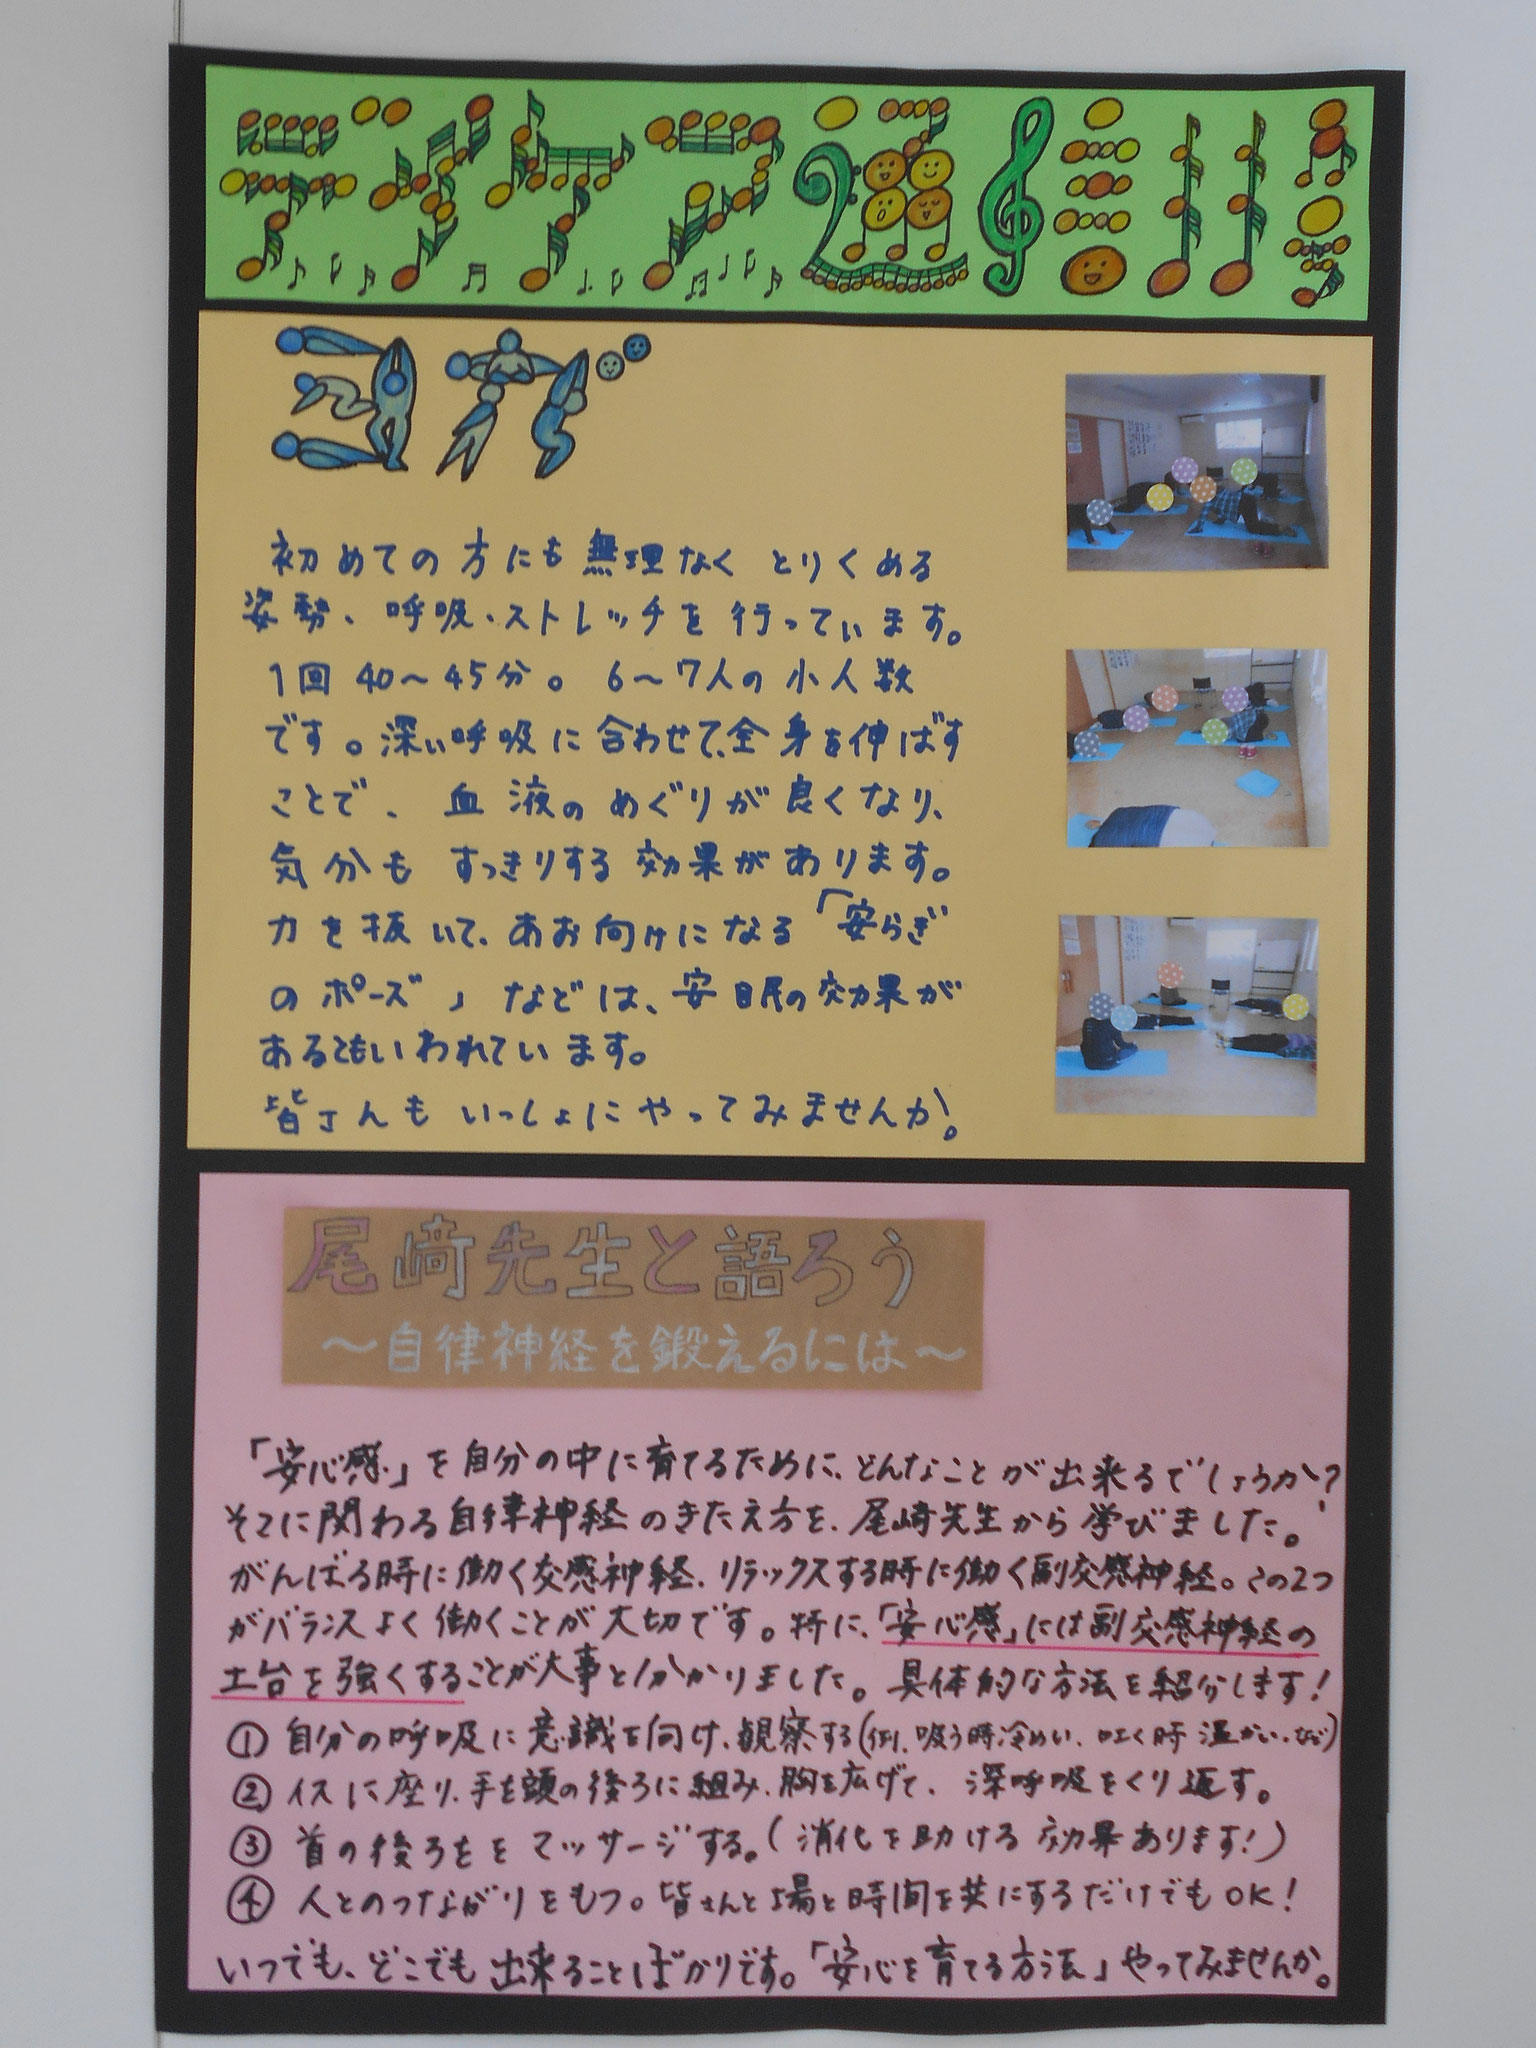 デイケア通信
ヨガ
初めての方にも無理なくとりくめる
姿勢、呼吸、ストレッチを行っています。
1回40～45分。6～7人の小人数
です。深い呼吸に合わせて、全身を伸ばす
ことで、血液のめぐりが良くなり、
気分もすっきりする効果があります。
力を抜いて、あお向けになる「安らぎ
のポーズ」などは、安眠の効果が
あるともいわれています。
皆さんもいっしょにやってみませんか。
尾﨑先生と語ろう
～自律神経を鍛えるには～
「安心感」を自分の中に育てるために、どんなことが出来るでしょうか?
そこに関わる自律神経のきたえ方を、尾﨑先生から学びました。
がんばる時に働く交感神経、リラックスする時に働く副交感神経。この2つ
がバランスよく働くことが大切です。特に、「安心感」には副交感神経の
土台を強くすることが大事と分かりました。具体的な方法を紹介します!
① 自分の呼吸に意識を向け、観察する(例、吸う時冷めい、吐く時温かい、など)
② イスに座り、手を頭の後ろに組み、胸を広げて、深呼吸をくり返す。
③ 首の後ろををマッサージする。(消化を助ける効果あります!)
④ 人とのつながりをもつ。皆さんと場と時間を共にするだけでもOK!
いつでも、どこでも出来ることばかりです。「安心を育てる方法」やってみませんか。